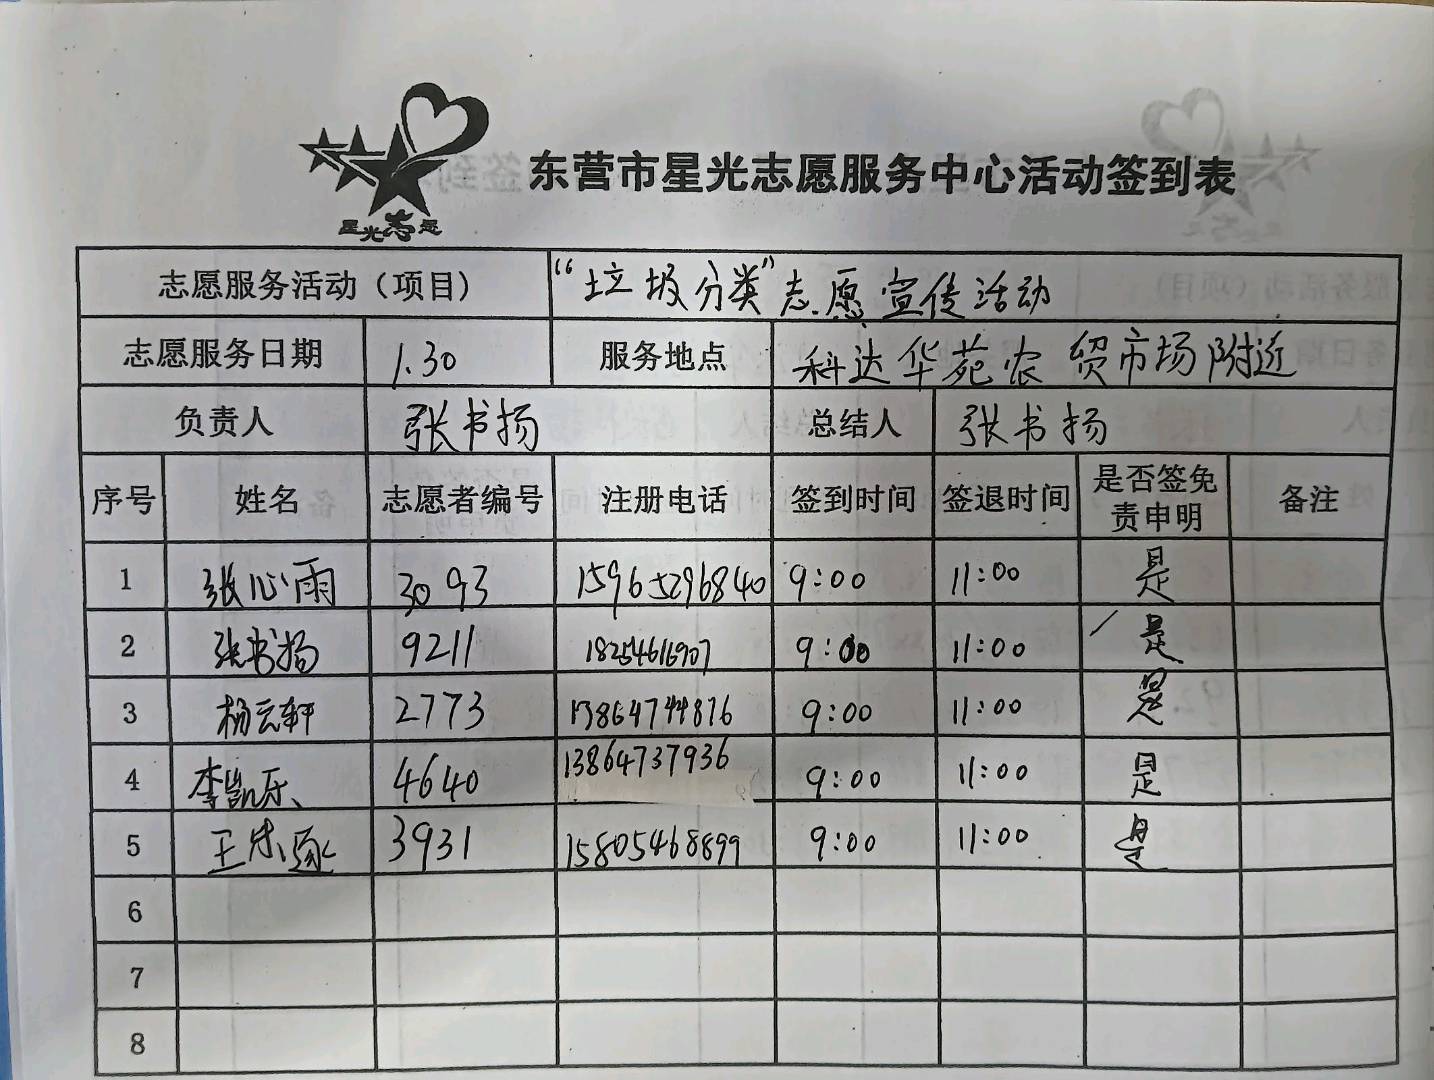 星光志愿
东营市星光志愿服务中心活动签到表
志愿服务活动（项目） “垃圾分类”志愿宣传活动
志愿服务日期 1.30 服务地点 科达华苑农贸市场附近
负责人 张书扬 总结人 张书扬
序号 姓名 志愿者编号 注册电话 签到时间 签退时间 是否签免责申明 备注
1 张心雨 3093 15965296840 9:00 11:00 是
2 张书扬 9211 18254616907 9:00 11:00 是
3 杨云轩 2773 13864744876 9:00 11:00 是
4 李凯乐 4640 13864737936 9:00 11:00 是
5 王 3931 15805468899 9:00 11:00 是
6
7
8